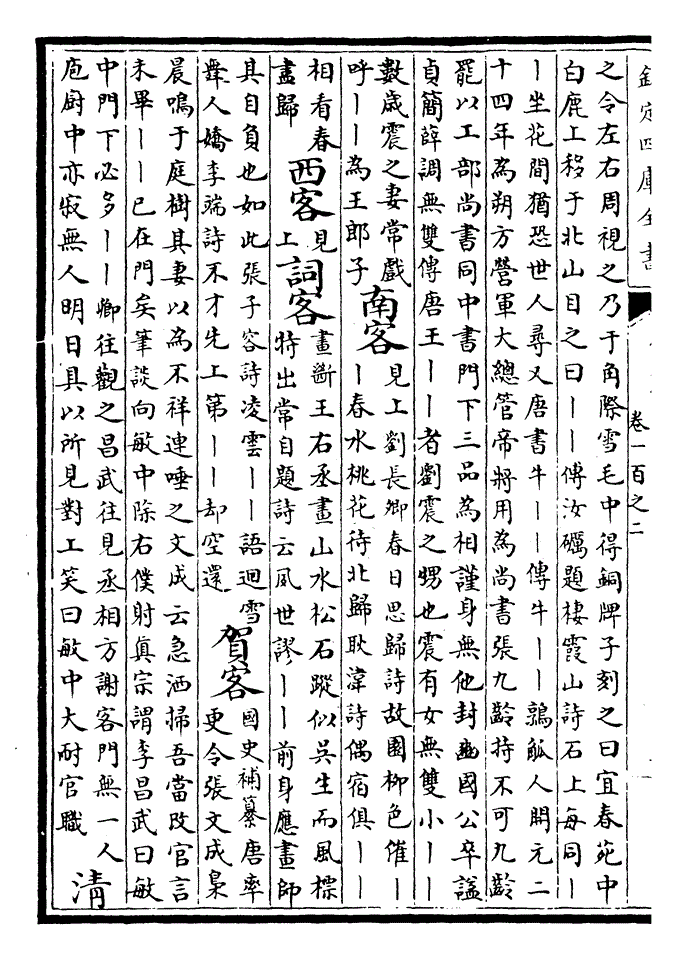 欽定四庫全書
卷一百之二
之令左右周視之乃于角際雪毛中得銅牌子刻之曰宜春苑中
白鹿上移于北山目之曰丨丨傅汝礪題棲霞山詩石上每同丨
丨坐花間猶恐世人尋又唐書牛丨丨傳牛丨丨鶉觚人開元二
十四年為朔方營軍大總管帝將用為尚書張九齡持不可九齡
罷以工部尚書同中書門下三品為相謹身無他封豳國公卒諡
貞簡薛調無雙傳唐王丨丨者劉震之甥也震有女無雙小丨丨
數歳震之妻常戲
呼丨丨為王郎子
南客
見上劉長卿春日思歸詩故園柳色催丨
丨春水桃花待北歸耿湋詩偶宿俱丨丨
相看春
盡歸
西客
見
上
詞客
畫斷王右丞畫山水松石蹤似吳生而風標
特出常自題詩云夙世謬丨丨前身應畫師
其自負也如此張子容詩凌雲丨丨語迴雪
舞人嬌李端詩不才先上第丨丨却空還
賀客
國史補纂唐率
更令張文成梟
晨鳴于庭樹其妻以為不祥連唾之文成云急洒掃吾當改官言
未畢丨丨已在門矣筆談向敏中除右僕射真宗謂李昌武曰敏
中門下必多丨丨卿往觀之昌武往見丞相方謝客門無一人
庖廚中亦寂無人明日具以所見對上笑曰敏中大耐官職
清